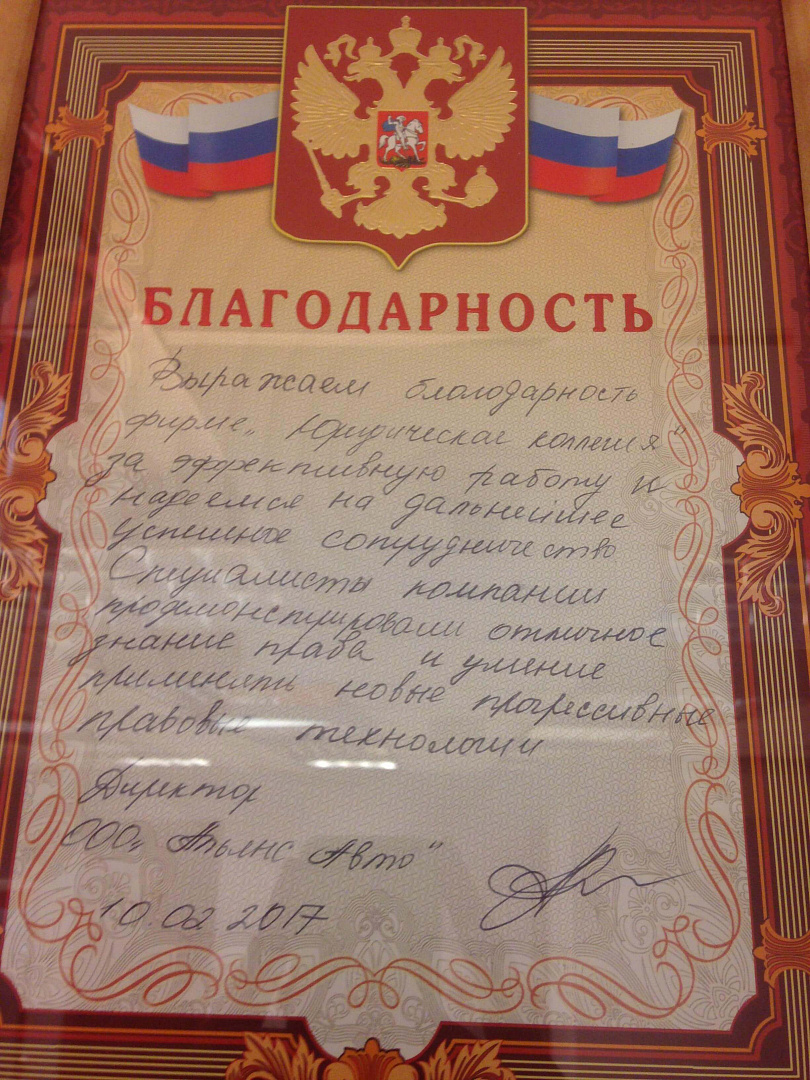 БЛАГОДАРНОСТЬ
Выражаем благодарность
фирме „Юридическая коллегия"
за эффективную работу и
надеемся на дальнейшее
успешное сотрудничество
Специалисты компании
продемонстрировали отличное
знание права и умение
применять новые прогрессивные
правовые технологии
Директор
ООО „Альянс Авто"
10.02.2017